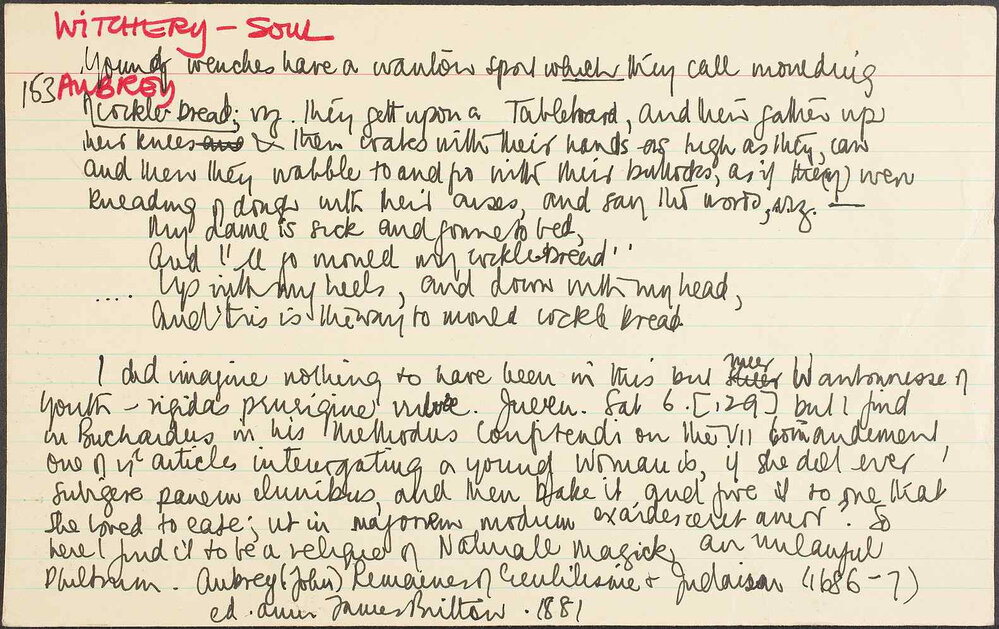 WITCHERY – SOUL
Young wenches have a wanton sport which they call moulding
163 AUBREY
Cockle-bread; viz. they gett upon a Tableboard, and then gather up
their knees & their coates with their hands as high as they can
and then they wabble to and fro with their buttocks, as if they were
kneading of dough with their arses, and say the words, viz. –
My dame is sick and gonne to bed,
And I'll go mould my cockle-bread'
.... Up with my heels, and down with my head,
And this is the way to mould cockle bread
I did imagine nothing to have been in this but meer Wantonnesse of
Youth – rigidas prurigine vulvae. Juven. Sat 6. [129] but I find
in Buchardus in his Methodus Confitendi on the VII Commandement,
one of ye articles interrogating a young woman is, if she did ever
subigere panem clunibus, and then bake it, and give it to one that
she loved to eate; ut in majorem modum exardesceret amor? So
here I find it to be a relique of Naturall Magick, an unlawful
Philtrum. Aubrey (John) Remaines of Gentilisme & Judaism (1686-7)
ed. James Britton. 1881